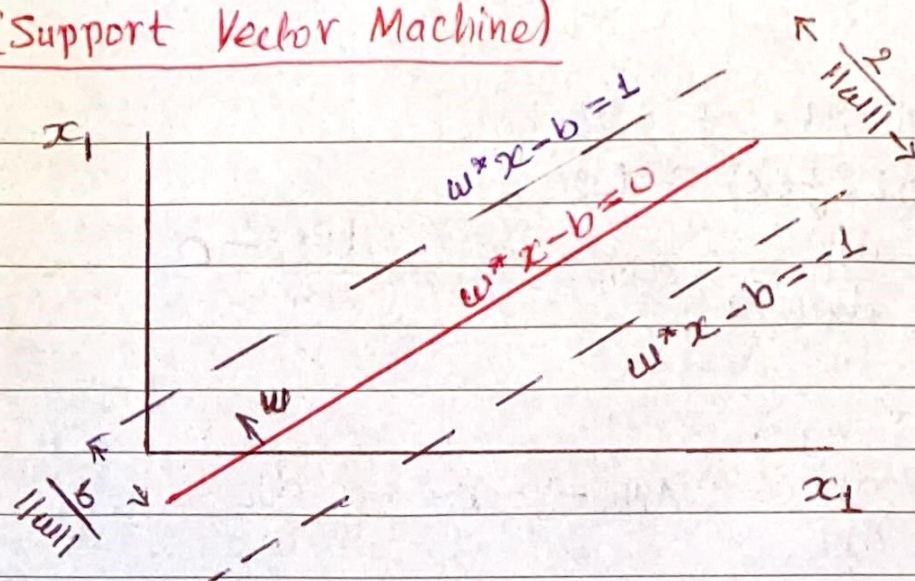 (Support Vector Machine)
2
||w||
x₁
w*x-b=1
w*x-b=0
w*x-b=-1
w
b
||w||
x₁